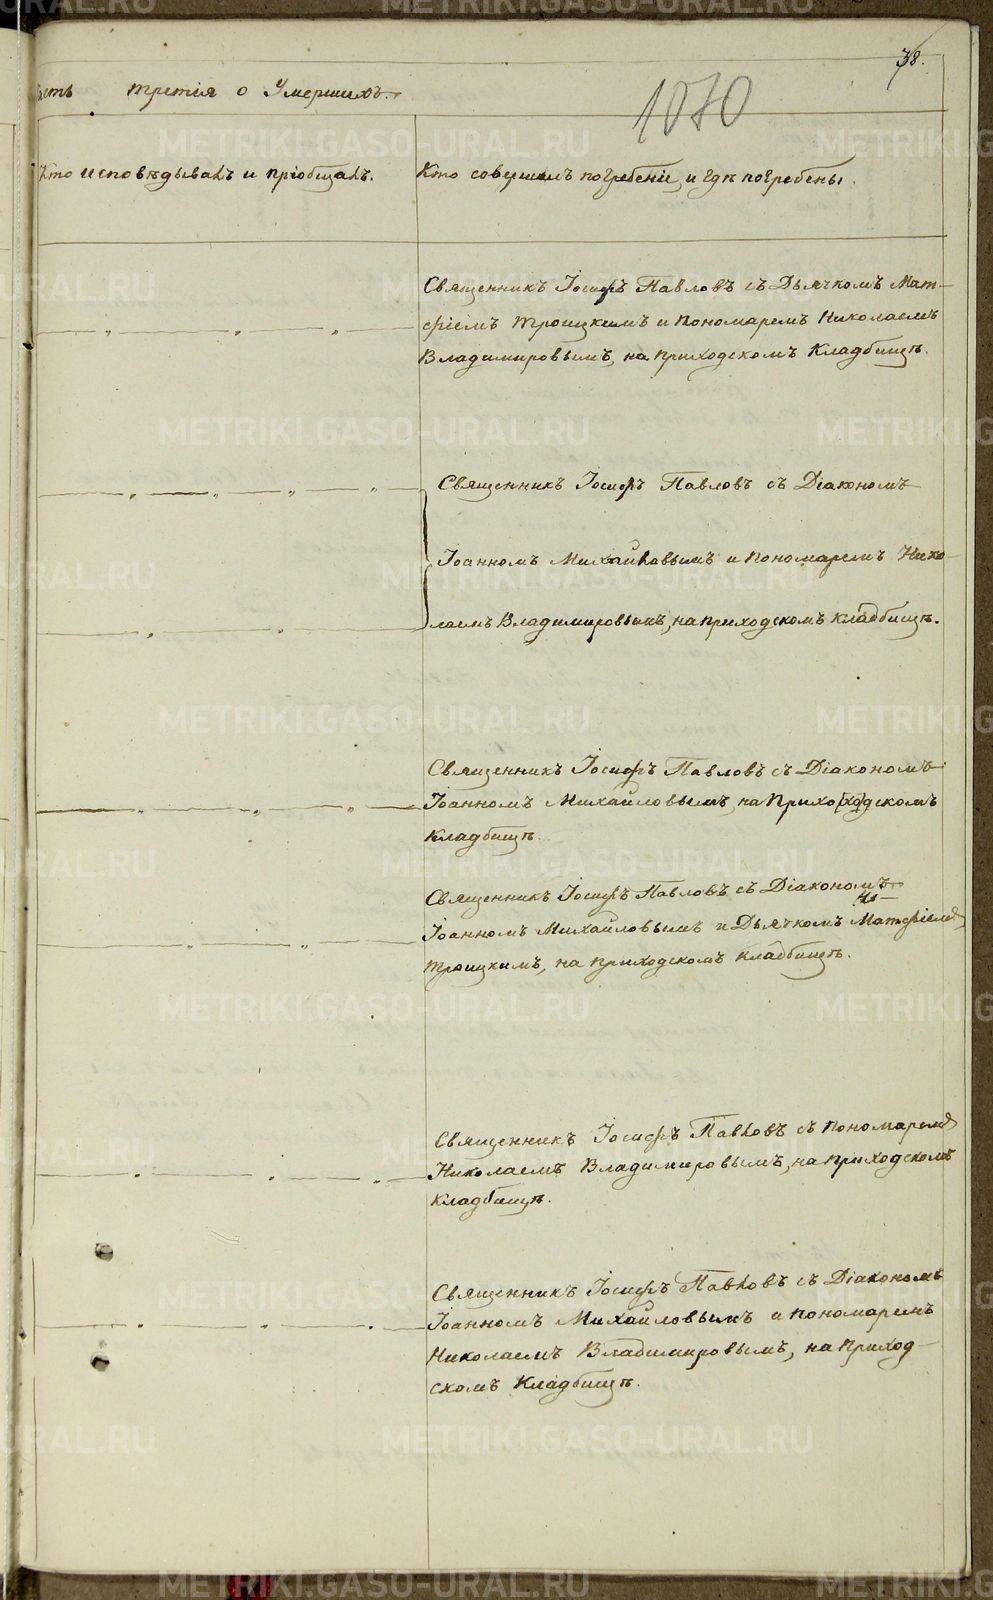 38.
асть третія о Умершихъ.
1070
Кто исповѣдывалъ и пріобщалъ.
Кто совершалъ погребеніе, и гдѣ погребены.
Священникъ Іосифъ Павловъ съ Дьячкомъ Мат-
фіемъ Троицкимъ и Пономаремъ Николаемъ
Владимировымъ, на приходскомъ Кладбищѣ.
Священникъ Іосифъ Павловъ съ Діакономъ
Іоанномъ Михайловымъ и Пономаремъ Нико-
лаемъ Владимировымъ, на приходскомъ кладбищѣ.
Священникъ Іосифъ Павловъ съ Діакономъ
Іоанномъ Михайловымъ, на Прихо[хо]дскомъ
Кладбищѣ.
Священникъ Іосифъ Павловъ съ Діакономъ
Іоанномъ Михайловымъ и Дьячкомъ Матфіемъ
Троицкимъ, на приходскомъ кладбищѣ.
Священникъ Іосифъ Павловъ съ Пономаремъ
Николаемъ Владимировымъ, на приходскомъ
Кладбищѣ.
Священникъ Іосифъ Павловъ съ Діакономъ
Іоанномъ Михайловымъ и Пономаремъ
Николаемъ Владимировымъ, на приход-
скомъ Кладбищѣ.
METRIKI.GASO-URAL.RU